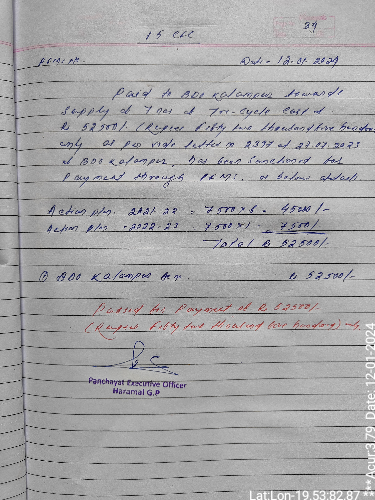 39
15 CFC
Date - 12-01-2024
Paid to BDO Kalampur towards
Supply of 7 nos of Tri-Cycle Cost of
Rs 52500/- (Rupees fifty two thousand five hundred
only as per vide letter no 2397 dt 23.09.2023
of BDO Kalampur, has been Sanctioned for
Payment through PFMS, as below details.
Action plan 2021-22 = 7500 x 6 = 45000/-
Action plan - 2022-23 = 7500 x 1 = 7500/-
Total Rs 52500/-
① BDO Kalampur Rs 52500/-
Passed for Payment of Rs 52500/-
(Rupees fifty two thousand five hundred) only
Panchayat Executive Officer
Haramal G.P
Lat:Lon-19.53:82.87
***Acur:3.79, Date: 12-01-2024